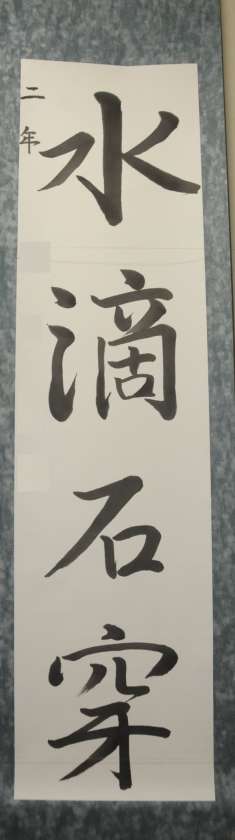 水滴石穿
二年